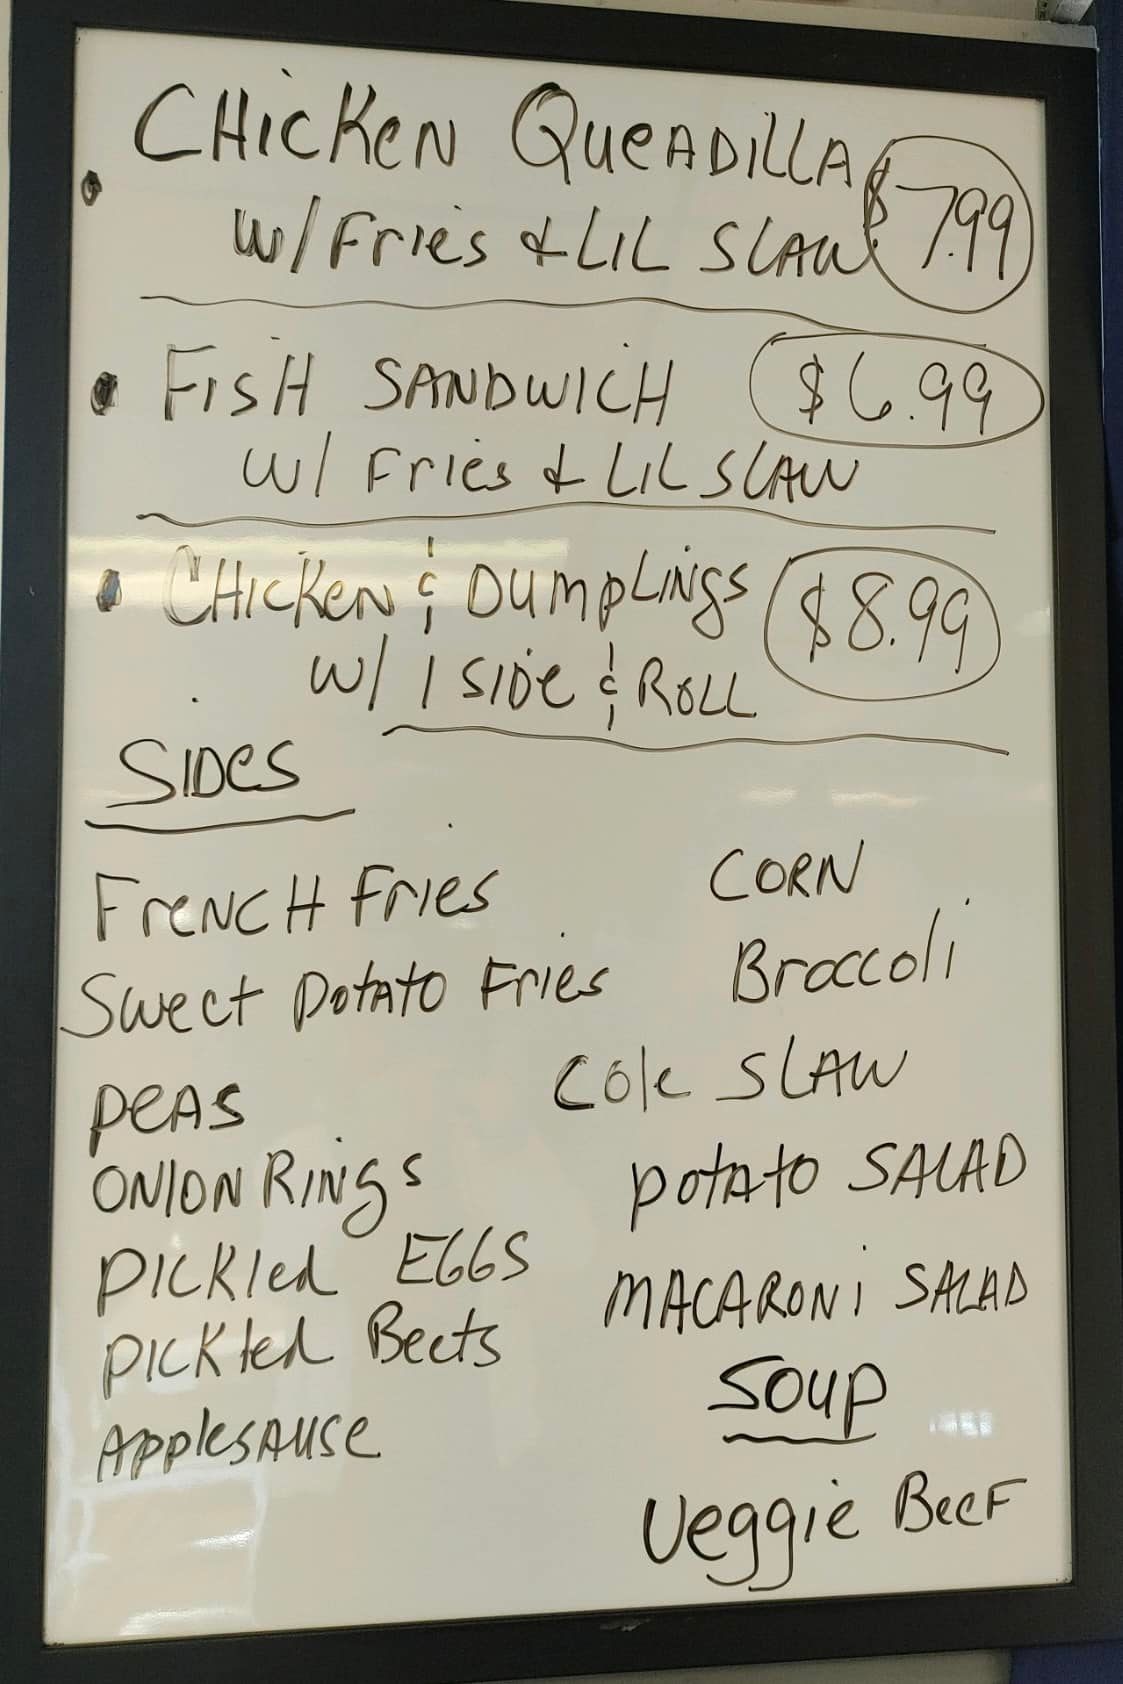 CHicKeN QueADiLLA
w/ Fries & LIL SLAW $7.99
• FisH SANDWICH $6.99
w/ Fries & LIL SLAW
• CHicKeN & DumpLiNgs $8.99
w/ 1 SIDe & ROLL
SIDeS
FreNCH Fries
Sweet Potato Fries
PeAS
ONION RiNgs
PICKled EGGS
PICKled Beets
ApplesAuse
CORN
Broccoli
Cole SLAW
potAto SALAD
MACARONi SALAD
Soup
Veggie BeeF